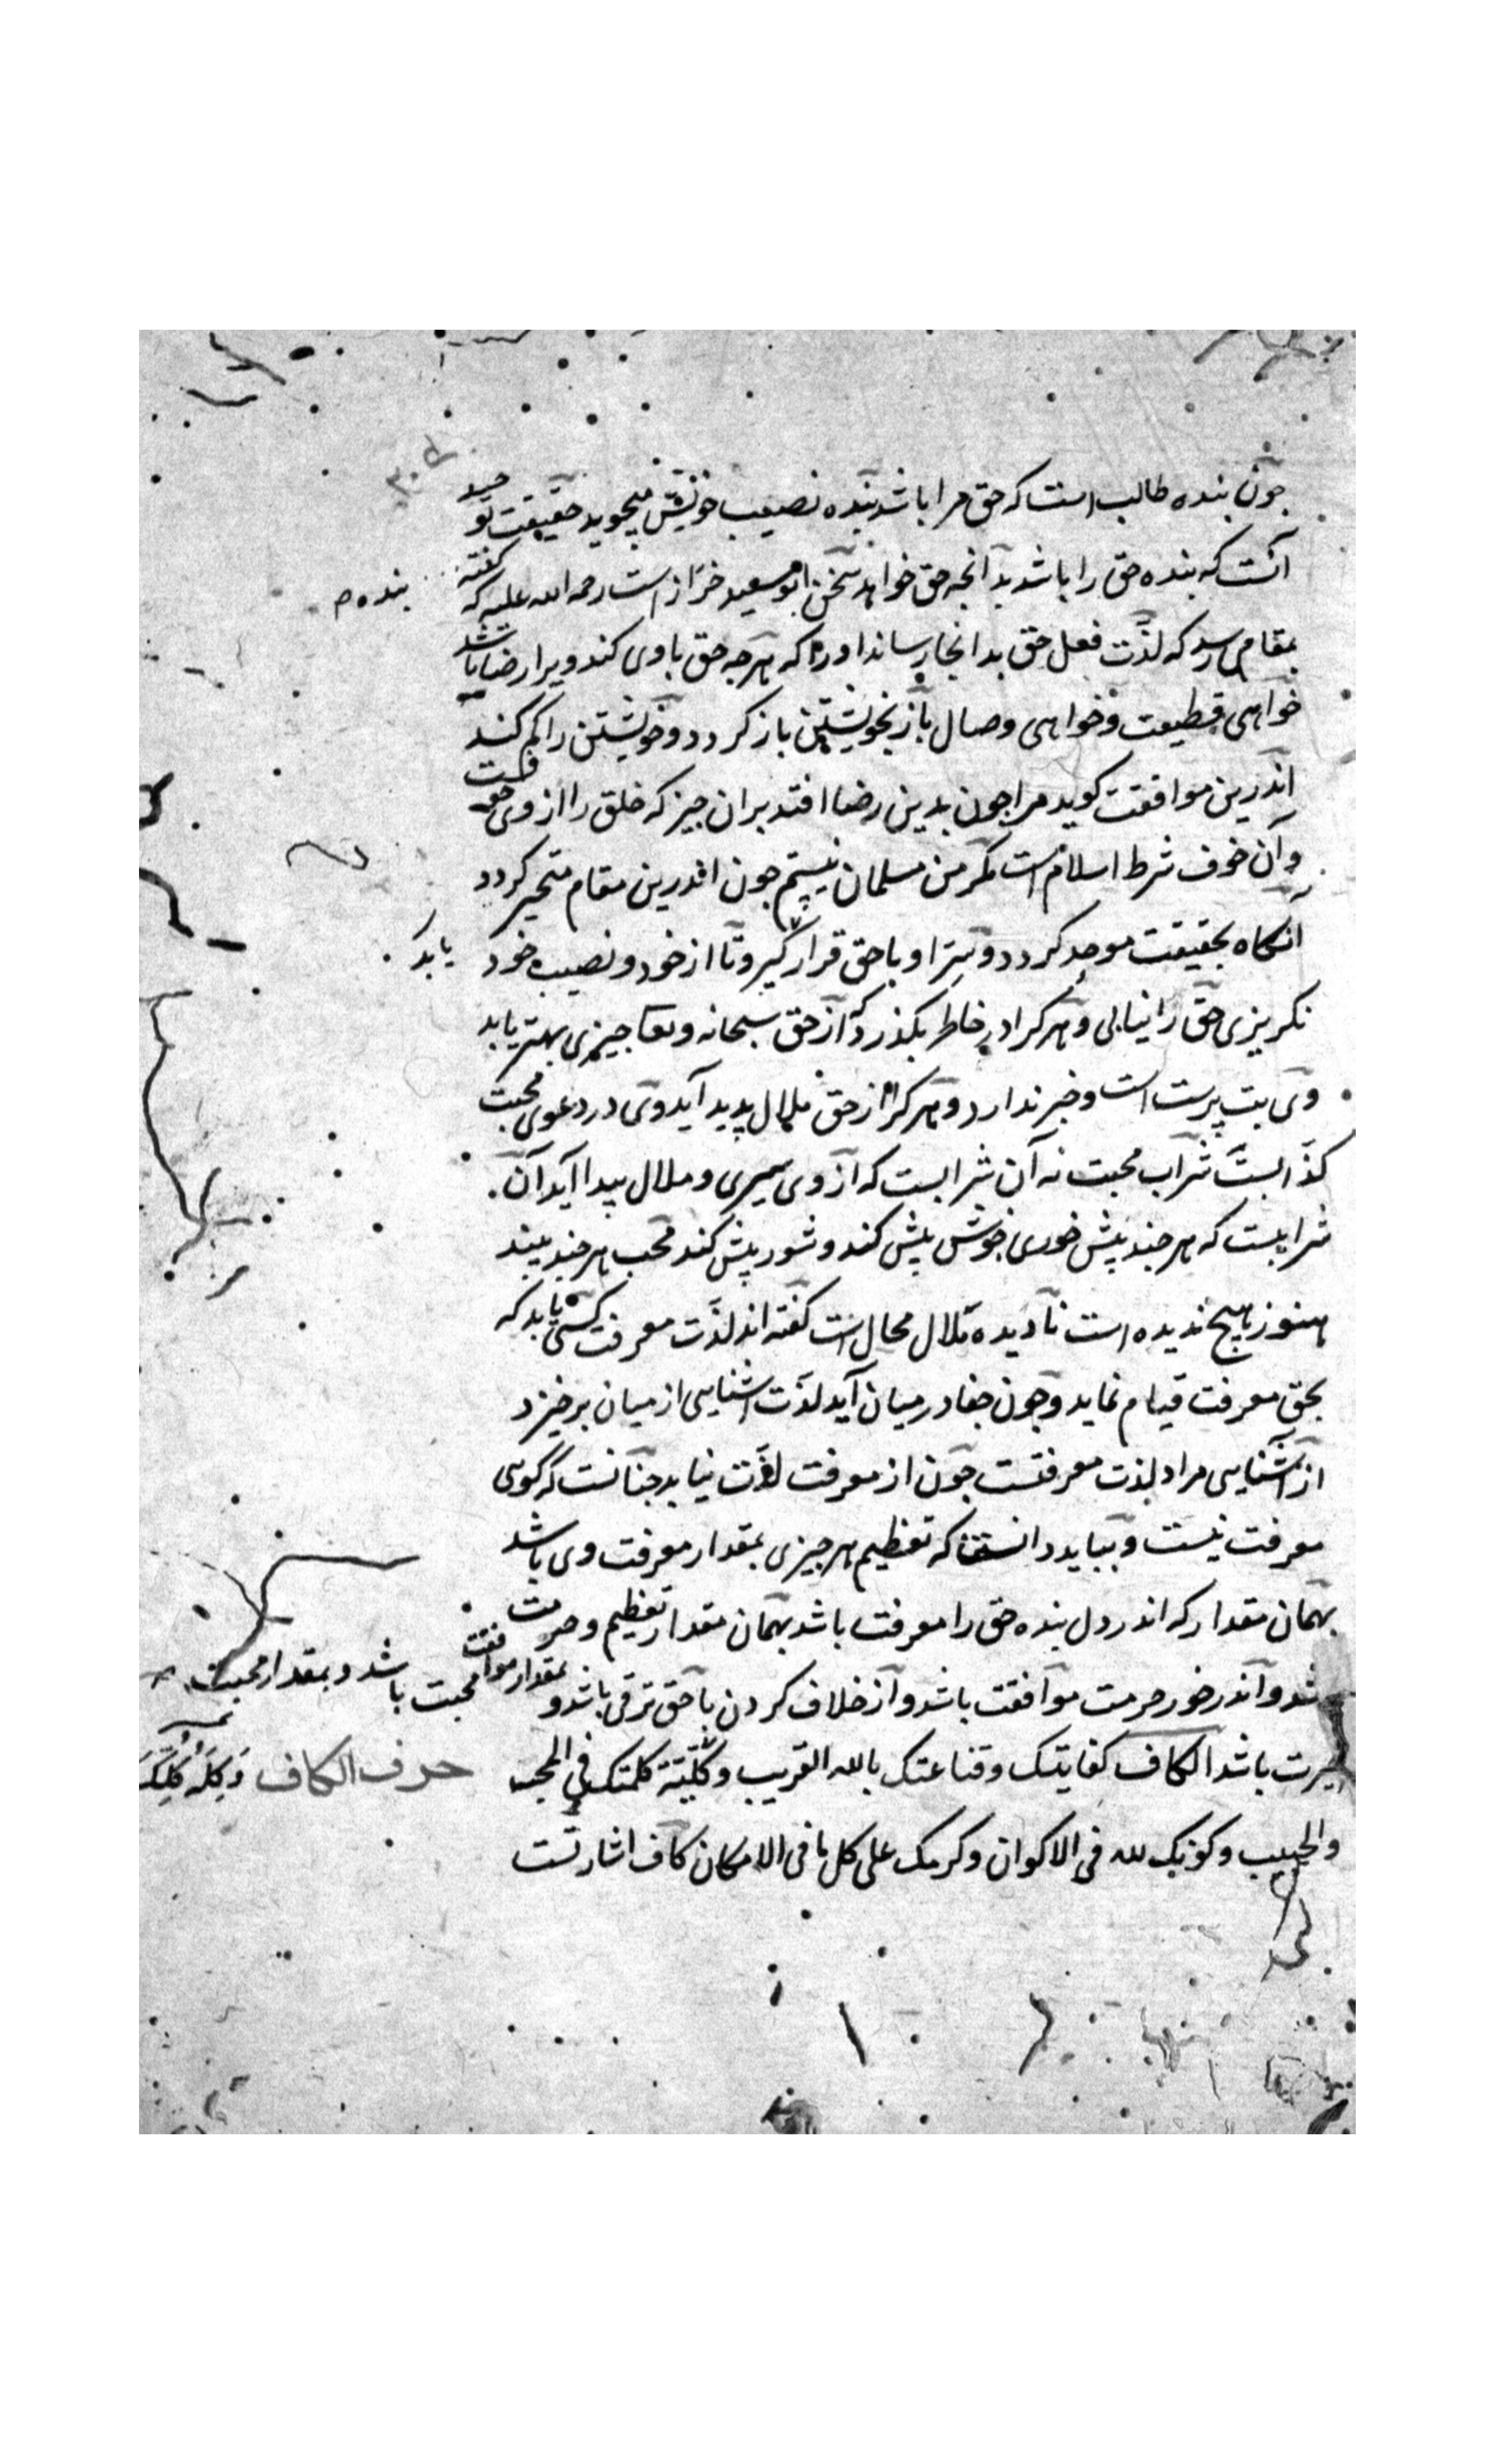 چون بنده طالب است که حق مرا باشد بنده نصیب خویش میجوید حقیقت توحید
آنست که بنده حق را باشد بدانچه حق خواهد سخن ابو سعید خراز است رحمه الله علیه که گفته
بنده
بمقامی رسد که لذت فعل حق بدانجا رساند او را که هرچه حق با وی کند ویرا رضا باشد
خواهی قطیعت و خواهی وصال باز بخویشتن باز کردد و خویشتن را کم کند
اندرین موافقت کوید مرا چون بدین رضا افتد بران چیز که خلق را از وی
وان خوف شرط اسلام است مکر من مسلمان نیستم چون اندرین مقام متحیر کردد
آنکاه بحقیقت موحد کردد و سر او با حق قرار گیرد و تا از خود و نصیب خود
یابد
نکریزی حق را نیابی و هر کرا در خاطر بکذرد که از حق سبحانه و تعا چیزی بهتر یابد
وی بت پرست است و خبر ندارد و هر کرا از حق ملال پدید آید وی در دعوی محبت
کذابست شراب محبت نه آن شرابست که از وی سیری و ملال پیدا آید آن
شرابیست که هر چند بیش خوری خوش بیش کند و شور بیش کند محب هر چند بیند
هنوز هیچ ندیده است نادیده ملال محال است گفته اند لذت معرفت کسی یابد که
بحق معرفت قیام نماید و چون جفا در میان آید لذت اشنایی از میان برخیزد
از آشنایی مراد لذت معرفتست چون از معرفت لذت نیابد چنانست که کوئی
معرفت نیست و بباید دانست که تعظیم هر چیزی بمقدار معرفت وی باشد
بهمان مقدار که اندر دل بنده حق را معرفت باشد بهمان مقدار تعظیم و حرمت
باشد و اندر خور حرمت موافقت باشد و از خلاف کردن با حق ترقی باشد و بمقدار موافقت محبت باشد و بمقدار محبت
غیرت باشد الکاف کفایتک و قناعتک بالله القریب و کلیته کلمتک فی المحب
حرف الکاف
والحبیب و کونک لله فی الاکوان و کرمک علی کل ما فی الامکان کاف اشارتست